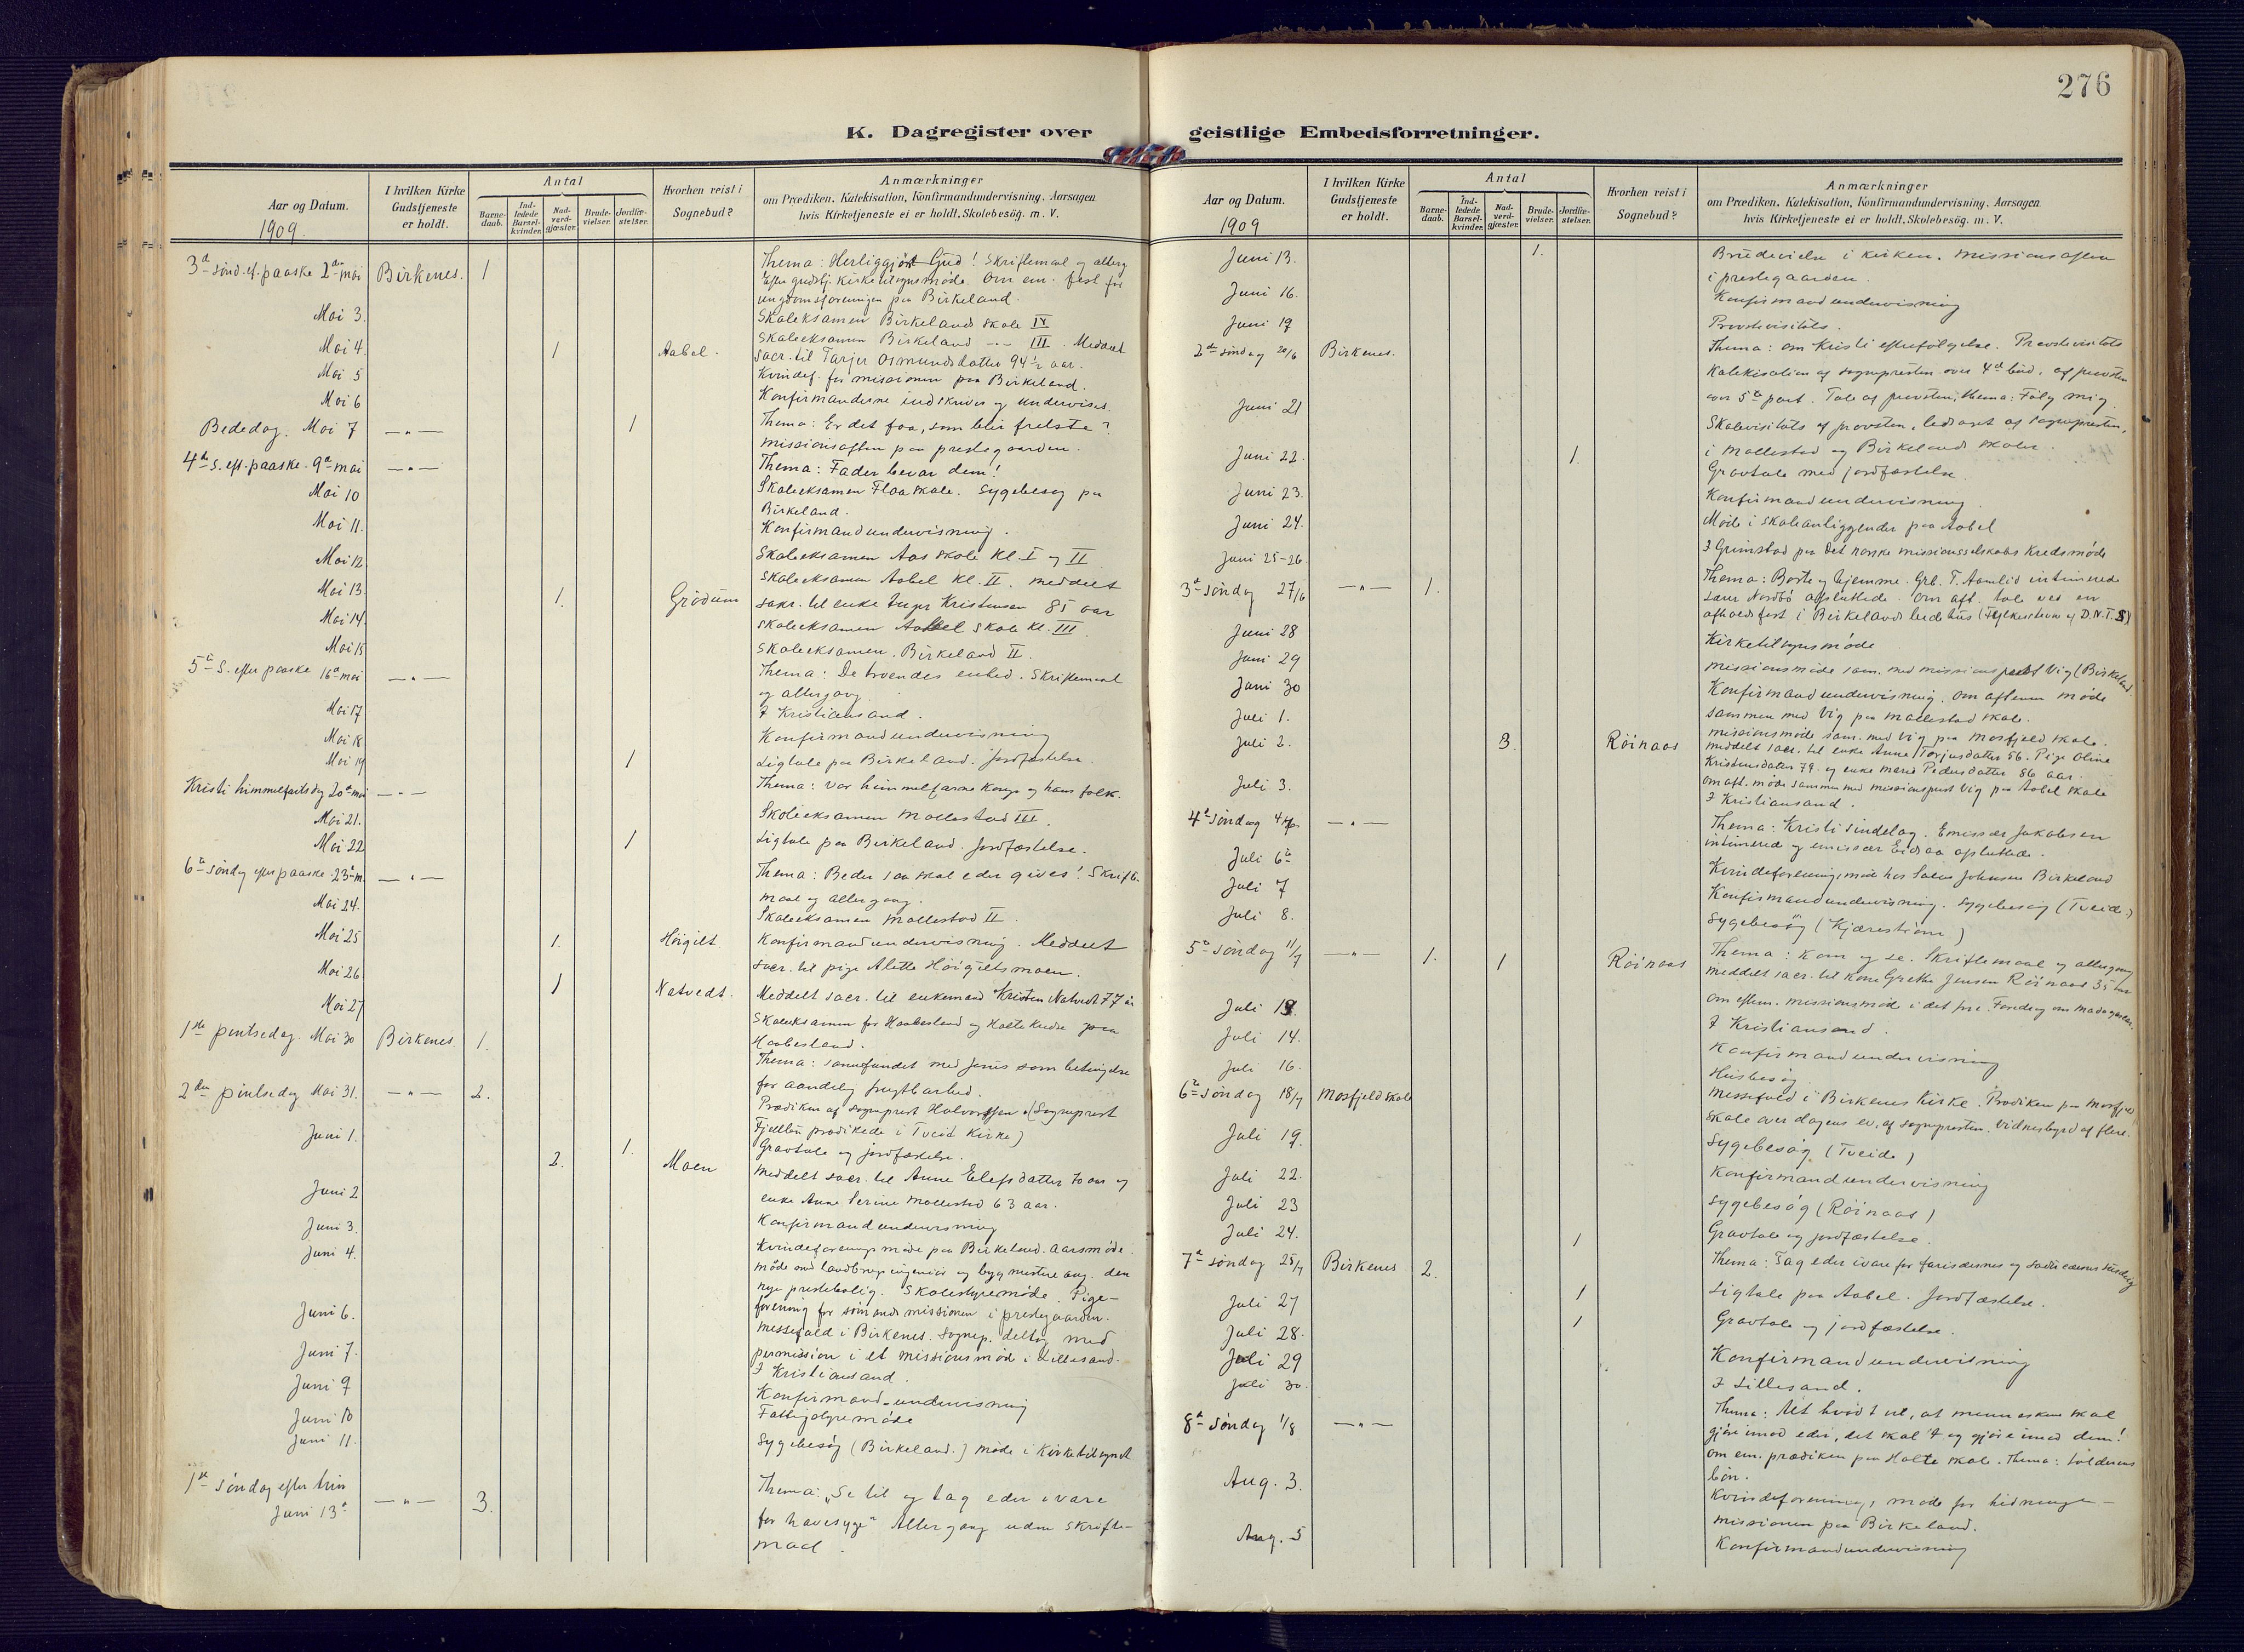 276
K. Dagregister over
geistlige Embedsforretninger.
Aar og Datum.
1909.
I hvilken Kirke
Gudstjeneste
er holdt.
Antal
Barne-
daab.
Ind-
ledede
Barsel-
kvinder.
Nad-
verd-
gjæster.
Brude-
vielser.
Jordfæ-
stelser.
Hvorhen reist i
Sognebud?
Anmærkninger
om Prædiken, Katekisation, Konfirmandundervisning, Aarsagen
hvis Kirketjeneste ei er holdt, Skolebesög. m. V.
3die sönd. ef. paaske 2den mai Birkenes. 1 Thema: Herliggjört Gud! Skriftemaal og alterg
Efter gudstj. kirketilsynsmöde. Om em. fest for
ungdomsforeningen paa Birkeland.
Mai 3. Skoleeksamen Birkelands skole IV
Mai 4. 1 Aabel. Skoleeksamen Birkeland -"- III. Meddelt
sacr. til Tarjer Osmundsdatter 94½ aar.
Mai 5 Kvindef. for missionen paa Birkeland.
Mai 6 Konfirmanderne indskrives og undervises.
Bededag. Mai 7 -"- 1 Thema: Er det faa, som blir frelste?
Missionsaften paa prestegaarden.
4de S. eft. paaske. 9de mai -"- Thema: Fader bevar dem!
Mai 10 Skoleeksamen Flaa skole. Sygebesøg paa
Birkeland.
Mai 11. Konfirmandundervisning.
Mai 12 Skoleeksamen Aas skole Kl. I og II
Mai 13 1. Grödum Skoleeksamen Aabel Kl. II. Meddelt
sakr. til enke Inger Kristensen 85 aar
Mai 14. Skoleeksamen Aabel skole Kl. III.
Mai 15 Skoleeksamen. Birkeland II.
5te S. efter paaske 16de mai -"- Thema: De troendes enhed. Skriftemaal
og altergang.
Mai 17 I Kristiansand.
Mai 18 Konfirmandundervisning
Mai 19 1 Ligtale paa Birkeland. Jordfæstelse.
Kristi himmelfartsdag 20de mai -"- Thema: Vor himmelfarne Konge og hans folk.
Mai 21. Skoleeksamen Mollestad III.
Mai 22 1 Ligtale paa Birkeland. Jordfæstelse.
6te Söndag efter paaske. 23de m. -"- Thema: Beder saa skal eder gives! Skrifte-
maal og altergang.
Mai 24. Skoleeksamen Mollestad II.
Mai 25 1. Höigilt. Konfirmandundervisning. Meddelt
sacr. til pige Alette Höigiltsmoen.
Mai 26 1 Natvedt. Meddelt sacr. til enkemand Kristen Natvedt 77 år
Mai 27 Skoleeksamen for Haabesland og Holte kreds paa
Haabesland.
1ste pintsedag. Mai 30 Birkenes. 1. Thema: Samfundet med Jesus som betingelse
for aandelig frugtbarhed.
2den pintsedag Mai 31. -"- 2. Prædiken af sogneprest Halvorssen. (Sogneprest
Fjeldbu prædikede i Tveid Kirke)
Juni 1. 1. Gravtale og jordfæstelse.
2. Moen Meddelt sacr. til Anne Elefsdatter 70 aar og
enke Anne Serine Mollestad 63 aar.
Juni 2 Konfirmandundervisning
Juni 3. Kvindeforeningsmöde paa Birkeland. Aarsmöde.
Juni 4. Möde med landbrugsingeniör og bygmestere ang. den
nye prestebolig. Skolestyremöde. Pige-
forening for sömandsmissionen i prestegaarden.
Juni 6. Messefald i Birkenes. Sognep. deltog med
permission i et missionsmöde i Lillesand.
Juni 7. I Kristiansand.
Juni 9 Konfirmand-undervisning
Juni 10 Fattigstyremöde
Juni 11. Sygebesög (Birkeland.) Möde i Kirketilsynet
1ste söndag efter trin
Juni 13de -"- 3. Thema: "Se til og tag eder ivare
for havesyge" Altergang uden skrifte-
maal.
Aar og Datum.
1909
I hvilken Kirke
Gudstjeneste
er holdt.
Antal
Barne-
daab.
Ind-
ledede
Barsel-
kvinder.
Nad-
verd-
gjæster.
Brude-
vielser.
Jordfæ-
stelser.
Hvorhen reist i
Sognebud?
Anmærkninger
om Prædiken, Katekisation, Konfirmandundervisning, Aarsagen
hvis Kirketjeneste ei er holdt, Skolebesög. m. V.
Juni 13. 1. Brudevielse i kirken. Missionsaften
i prestegaarden.
Juni 16. Konfirmandundervisning
Juni 19 Provstevisitats.
2den söndag 20/6 Birkenes. Thema: Om Kristi efterfölgelse. Provstevisitats
Katekisation af sognepresten over 4de bud, af provsten
over 5te part. Tale af provsten, thema: Fölg mig.
Juni 21 Skolevisitats af provsten, ledsaget af sognepresten,
i Mollestad og Birkeland skoler.
Juni 22. 1. Gravtale med jordfæstelse.
Juni 23. Konfirmandundervisning
Juni 24. Möde i skoleanliggender paa Aabel
Juni 25-26 I Grimstad paa Det norske missionsselskabs Kredsmöde
3die söndag 27/6 -"- 1. Thema: Borte og hjemme. Grb. T. Aamlid intimerede
Nordbö afsluttede. Om aft. tale ved en
afholdsfest i Birkelands bedehus
Juni 28 Kirketilsynsmöde
Juni 29 Missionsmöde sam. med missionsprest Vig (Birkeland.
Juni 30 Konfirmandundervisning. Om aftenen möde
sammen med Vig paa Mollestad skole.
Juli 1. Missionsmöde sam. med Vig paa Mosfjeld skole.
Juli 2. 3. Röinaas Meddelt sacr. til enke Anne Torjusdatter 56. Pige Oline
Kristensdatter 79. og enke Marie Pedersdatter 86 aar.
Om aft. möde sammen med missionsprest Vig paa Aabel skole
Juli 3. I Kristiansand.
4de söndag 4/7 -"- Thema: Kristi sindelag. Emissær Jakobsen
intimerede og emissær Eidsaa afsluttede.
Juli 6te Kvindeforeningsmöde hos Johnsen Birkeland
Juli 7 Konfirmandundervisning. Sygebesög (Tveide.)
Juli 8. Sygebesög (Kjærestrøm)
5te söndag 11/7 -"- 1. 1 Röinaas Thema: Kom og se. Skriftemaal og altergang
Meddelt sacr. til kone Grethe Jensen Röinaas 35 aar
Om efterm. missionsmöde i det fri. Foredrag om Madagaskar.
Juli 13 I Kristiansand.
Juli 14. Konfirmandundervisning
Juli 16. Husbesög.
6te söndag 18/7 Mosfjeld skole Messefald i Birkenes Kirke. Prædiken paa Mosfjeld
skole over dagens ev. af sognepresten. Vidnesbyrd af flere.
Juli 19. Sygebesög (Tveide)
Juli 22. Konfirmandundervisning
Juli 23 Sygebesög (Röinaas)
Juli 24. 1 Gravtale og jordfæstelse.
7de söndag 25/7 Birkenes 2. Thema: Tag eder ivare for farisæernes og sadducæernes surdeig
Juli 27 1 Ligtale paa Aabel. Jordfæstelse.
Juli 28. 1 Gravtale og jordfæstelse.
Juli 29 Konfirmandundervisning
Juli 30. I Lillesand.
8de söndag 1/8 -"- Thema: Alt hvad I vil, at menneskene skal
gjöre imod eder, det skal I og gjöre imod dem!
Om em. prædiken paa Holte skole. Thema: Tolderens
bön.
Aug. 3. Kvindeforenings möde for hedninge-
missionen paa Birkeland.
Aug. 5 Konfirmandundervisning